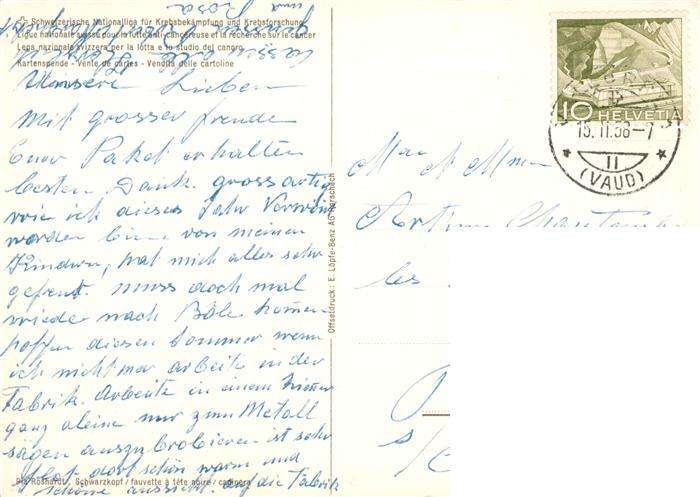 Schweizerische Nationalliga für Krebsbekämpfung und Krebsforschung
Ligue nationale suisse pour la lutte anti-cancéreuse et la recherche sur le cancer
Lega nazionale svizzera per la lotta e lo studio del cancro
Kartenspende - Vente de cartes - Vendita delle cartoline
und Rosa
Unsere Lieben
Mit grosser freude
Euer Paket erhalten
besten Dank. grossartig
wie ich dieses Jahr Verwön
worden bin von meinen
Kindern, hat mich alles sehr
gefreut. muss doch mal
wieder nach Bôle kommen
hoffen diesen Sommer wenn
ich nicht mer arbeit in der
Fabrik. Arbeite in einem Zimmer
ganz aleine nur zum Metall
sägen auszubrobieren ist sehr
schön warm und
schöne aussicht. auf die Fabrik
918 Röshardt, Schwarzkopf / fauvette à tête noire / capinera
Offsetdruck: E. Löpfe-Benz AG Rorschach
10 HELVETIA
15.II.58-7
11
(VAUD)
Mr et Mme
les